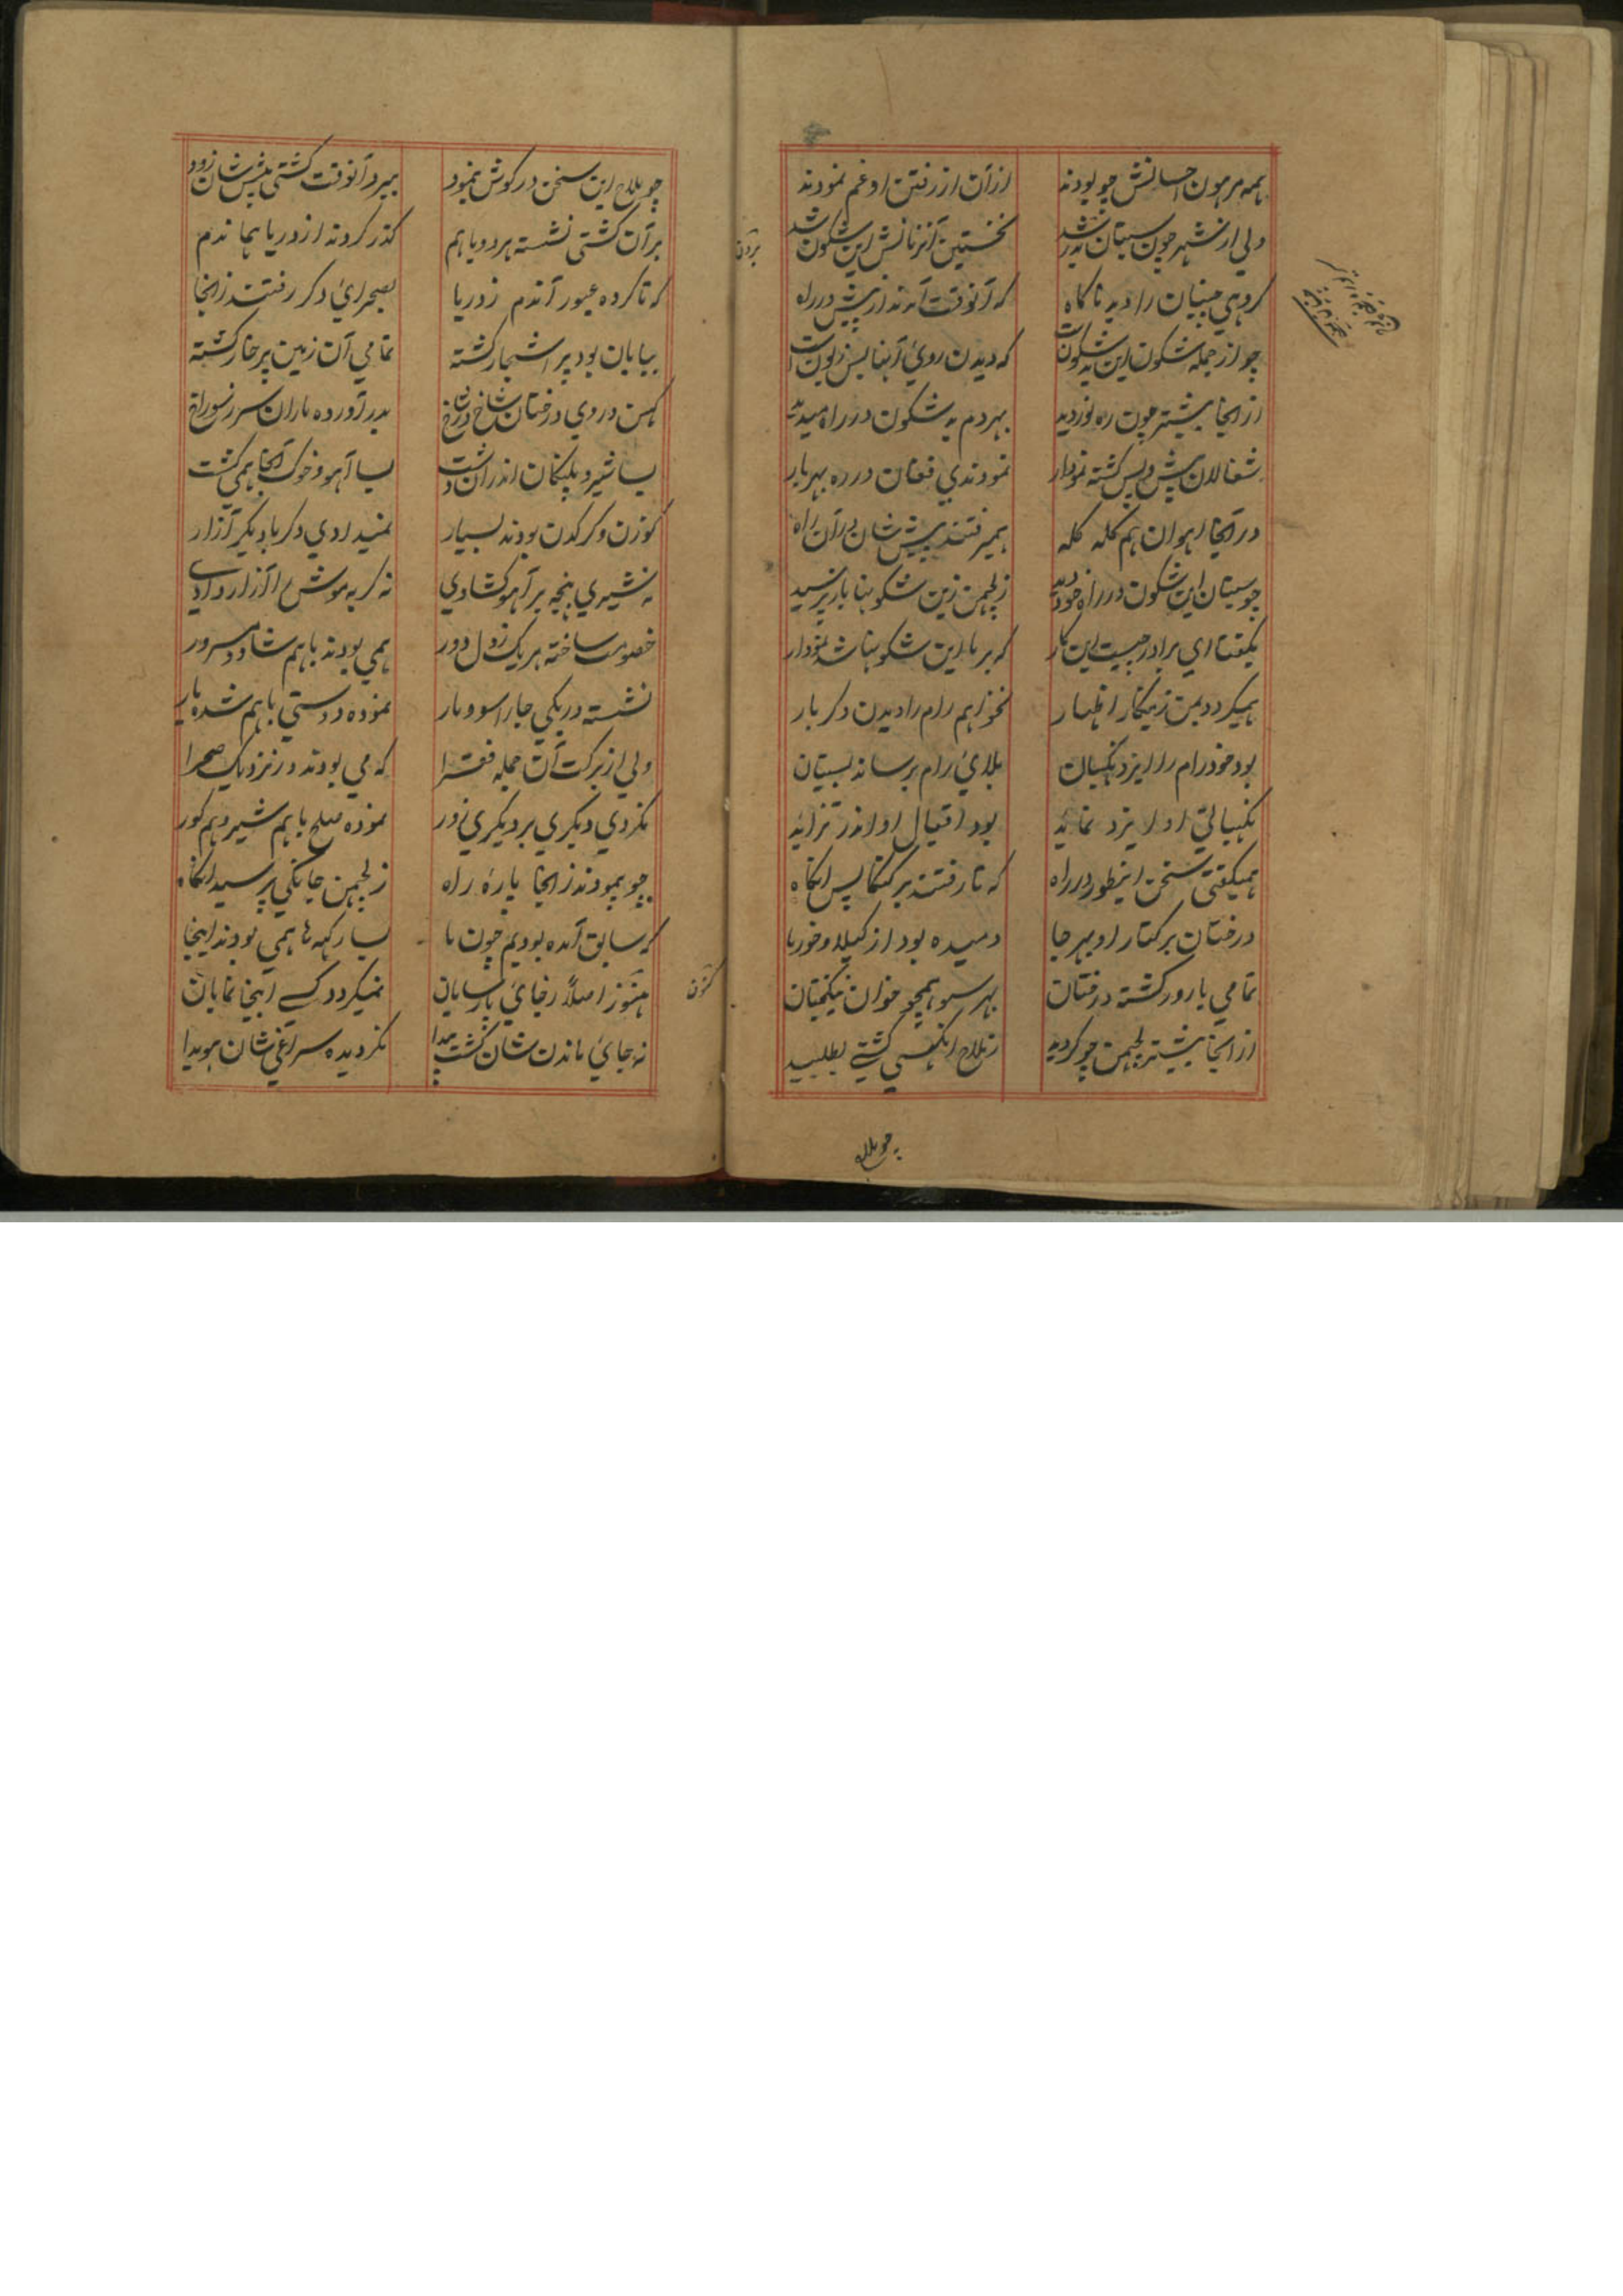 همه مرهون احسانش چو بودند ازان از رفتن او غم نمودند
ولی از شهر چون سیتان بدر شد نخستین آنزمانش این شکون شد
کروهی را دید ناکاه که آنوقت آمدند از پیش در راه
چو از جمله شکون این بد شکونست که دیدن روئ آنها بس زبونست
از انجا پیشتر چون ره نوردید بهردم بد شکون در راه میدید
شغالان پیش و پس کشته نمودار نمودندی فغان در ره بهر بار
در آنجا اهوان هم کله کله همیرفتند پیش شان در آن راه
چو سیتان این شکون در راه خود دید ز لچمن زین شکونها باز پرسید
بکفتا ای برادر چیست این کار که بر ما این شکونها شد نمودار
همیکردد بمن زینکار اظهار نخواهم رام را دیدن دکر بار
بود خود رام را ایزد نکهبان بلائ رام برساند بسیتان
نکهبانی او ایزد نماید بود اقبال او اندر تزاید
همیکفتی سخن اینطور در راه که تا رفتند بر کنکا پس انکاه
درختان بر کنار او بهر جا دمیده بود از کیلا و خورما
تمامی بارور کشته درختان بهر سو همچو خوان نیکبختان
از انجا پیشتر لچمن چو کردید ز ملاح انکسی کشتی بطلبید
چو ملاح
چو ملاح این سخن در کوش نمود ببرد آنوقت کشتی پیش شان زود
بر آن کشتی نشسته هردو باهم کذر کردند از دریا هماندم
که تا کرده عبور آندم ز دریا بصحرائ دکر رفتند زانجا
بیابان بود پر اشجار کشته تمامی آن زمین پر خار کشته
کهن در وی درختان شاخ در شاخ بدر آورده ماران سر ز سوراخ
بسا شیر و پلنکان اندران دشت بسا آهو و خوک آنجا همی کشت
کوزن و کرکدن بودند بسیار نمیدادی دکر با دیکر آزار
نه شیری پنجه بر آهو کشادی نه کربه موش را آزار دادی
خصومت ساخته هریک ز دل دور همی بودند باهم شاد و مسرور
نشسته در یکی جا راسو و مار نموده دوستی باهم شده یار
ولی از برکت آن جمله فقرا که می بودند در نزدیک صحرا
نکردی دیکری بر دیکری زور نموده صلح باهم شیر و هم کور
چو پیمودند زانجا پاره راه ز لچمن جانکی پرسید انکاه
که سابق آمده بودیم چون ما بسا رکهه ها همی بودند اینجا
هنوز اصلاً رجائ پارسایان نمیکردد کسے اینجا نمایان
نه جائ ماندن شان کشت پیدا نکردیده سراغی شان هویدا
کنون